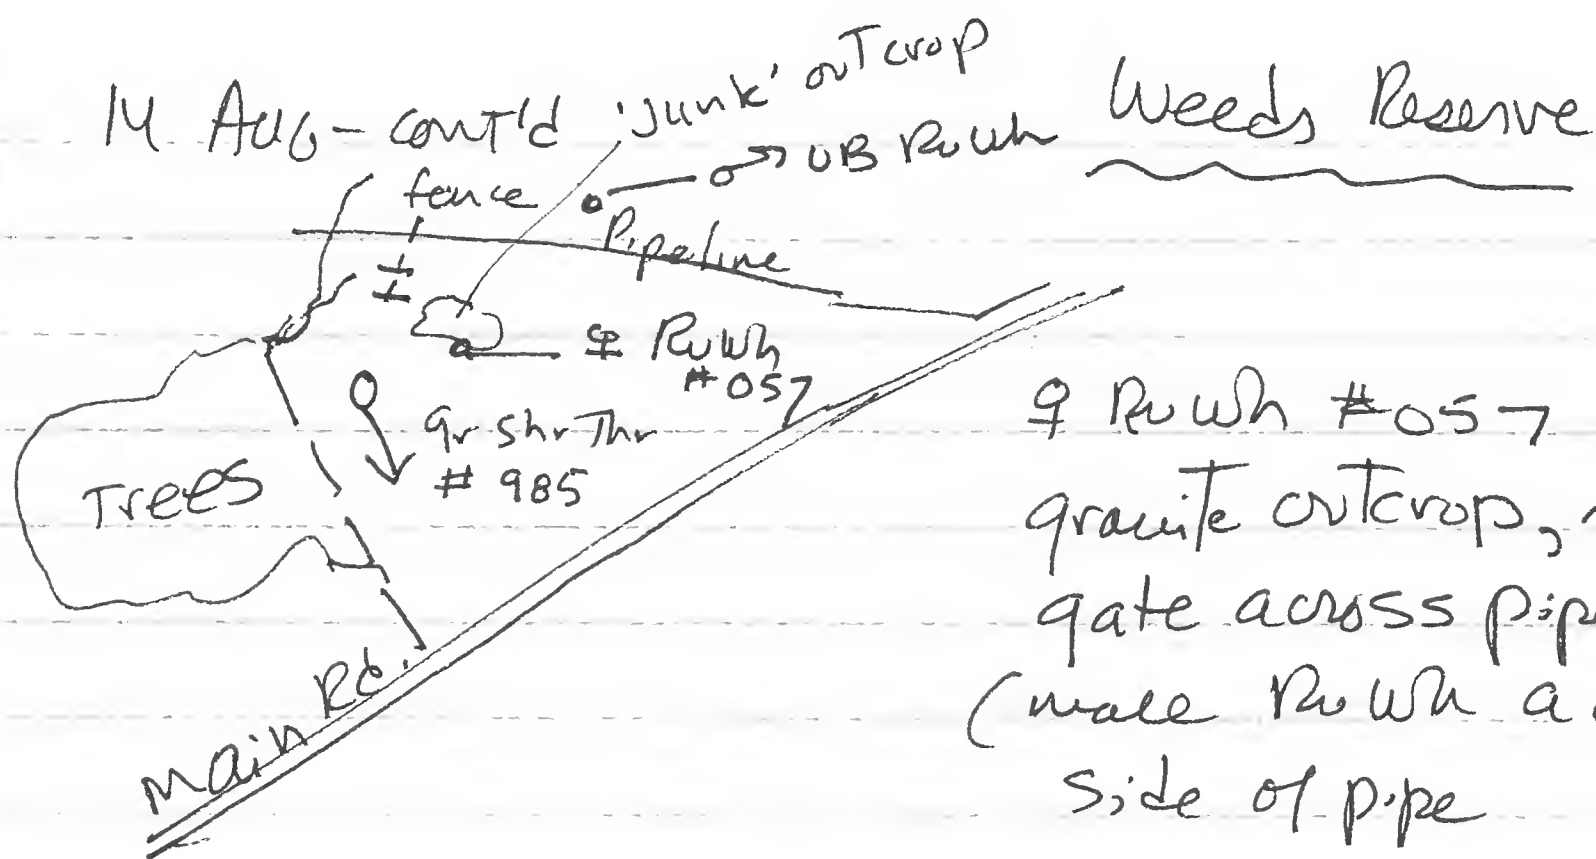 14 AUG - cont'd 'Junk' outcrop
Weeds Reserve
fence
UB RuWh
Pipeline
♀ RuWh
#057
Gr Shr Thr
# 985
Trees
Main Rd.
♀ RuWh #057
granite outcrop,
gate across pip
(male RuWh a
side of pipe